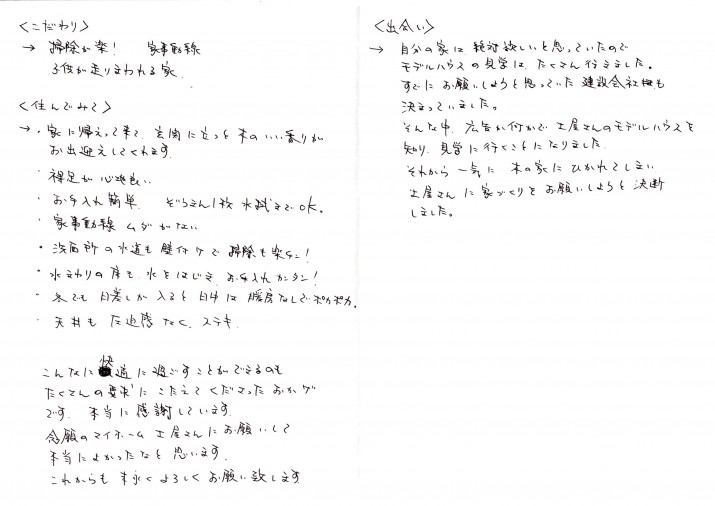 ＜こだわり＞
→ 掃除が楽！ 家事動線
子供が走りまわれる家.
＜住んでみて＞
→ ・家に帰えって来て、玄関に立つと木のいい香りが
お出迎えしてくれます.
・裸足が心地良い.
・お手入れ簡単. ぞうきん1枚 水拭きでOK.
・家事動線 ムダがない
・洗面所の水道も壁付ケで掃除も楽チン！
・水まわりの床も、水をはじき、お手入れカンタン！
・冬でも 日差しが入ると日中は暖房なしでポカポカ.
・天井も圧迫感なく、ステキ.
こんなに快適に過ごすことができるのも
たくさんの要求にこたえてくださったおかゲ
です. 本当に感謝しています.
念願のマイホーム 土屋さんにお願いして
本当によかったなと思います.
これからも末永くよろしくお願い致します
＜出会い＞
→ 自分の家は絶対欲しいと思っていたので
モデルハウスの見学は、たくさん行きました。
すでにお願いしようと思っていた建設会社様も
決まっていました。
そんな中、広告か何かで土屋さんのモデルハウスを
知り、見学に行くことになりました.
それから一気に木の家にひかれてしまい
土屋さんに家づくりをお願いしようと決断
しました。